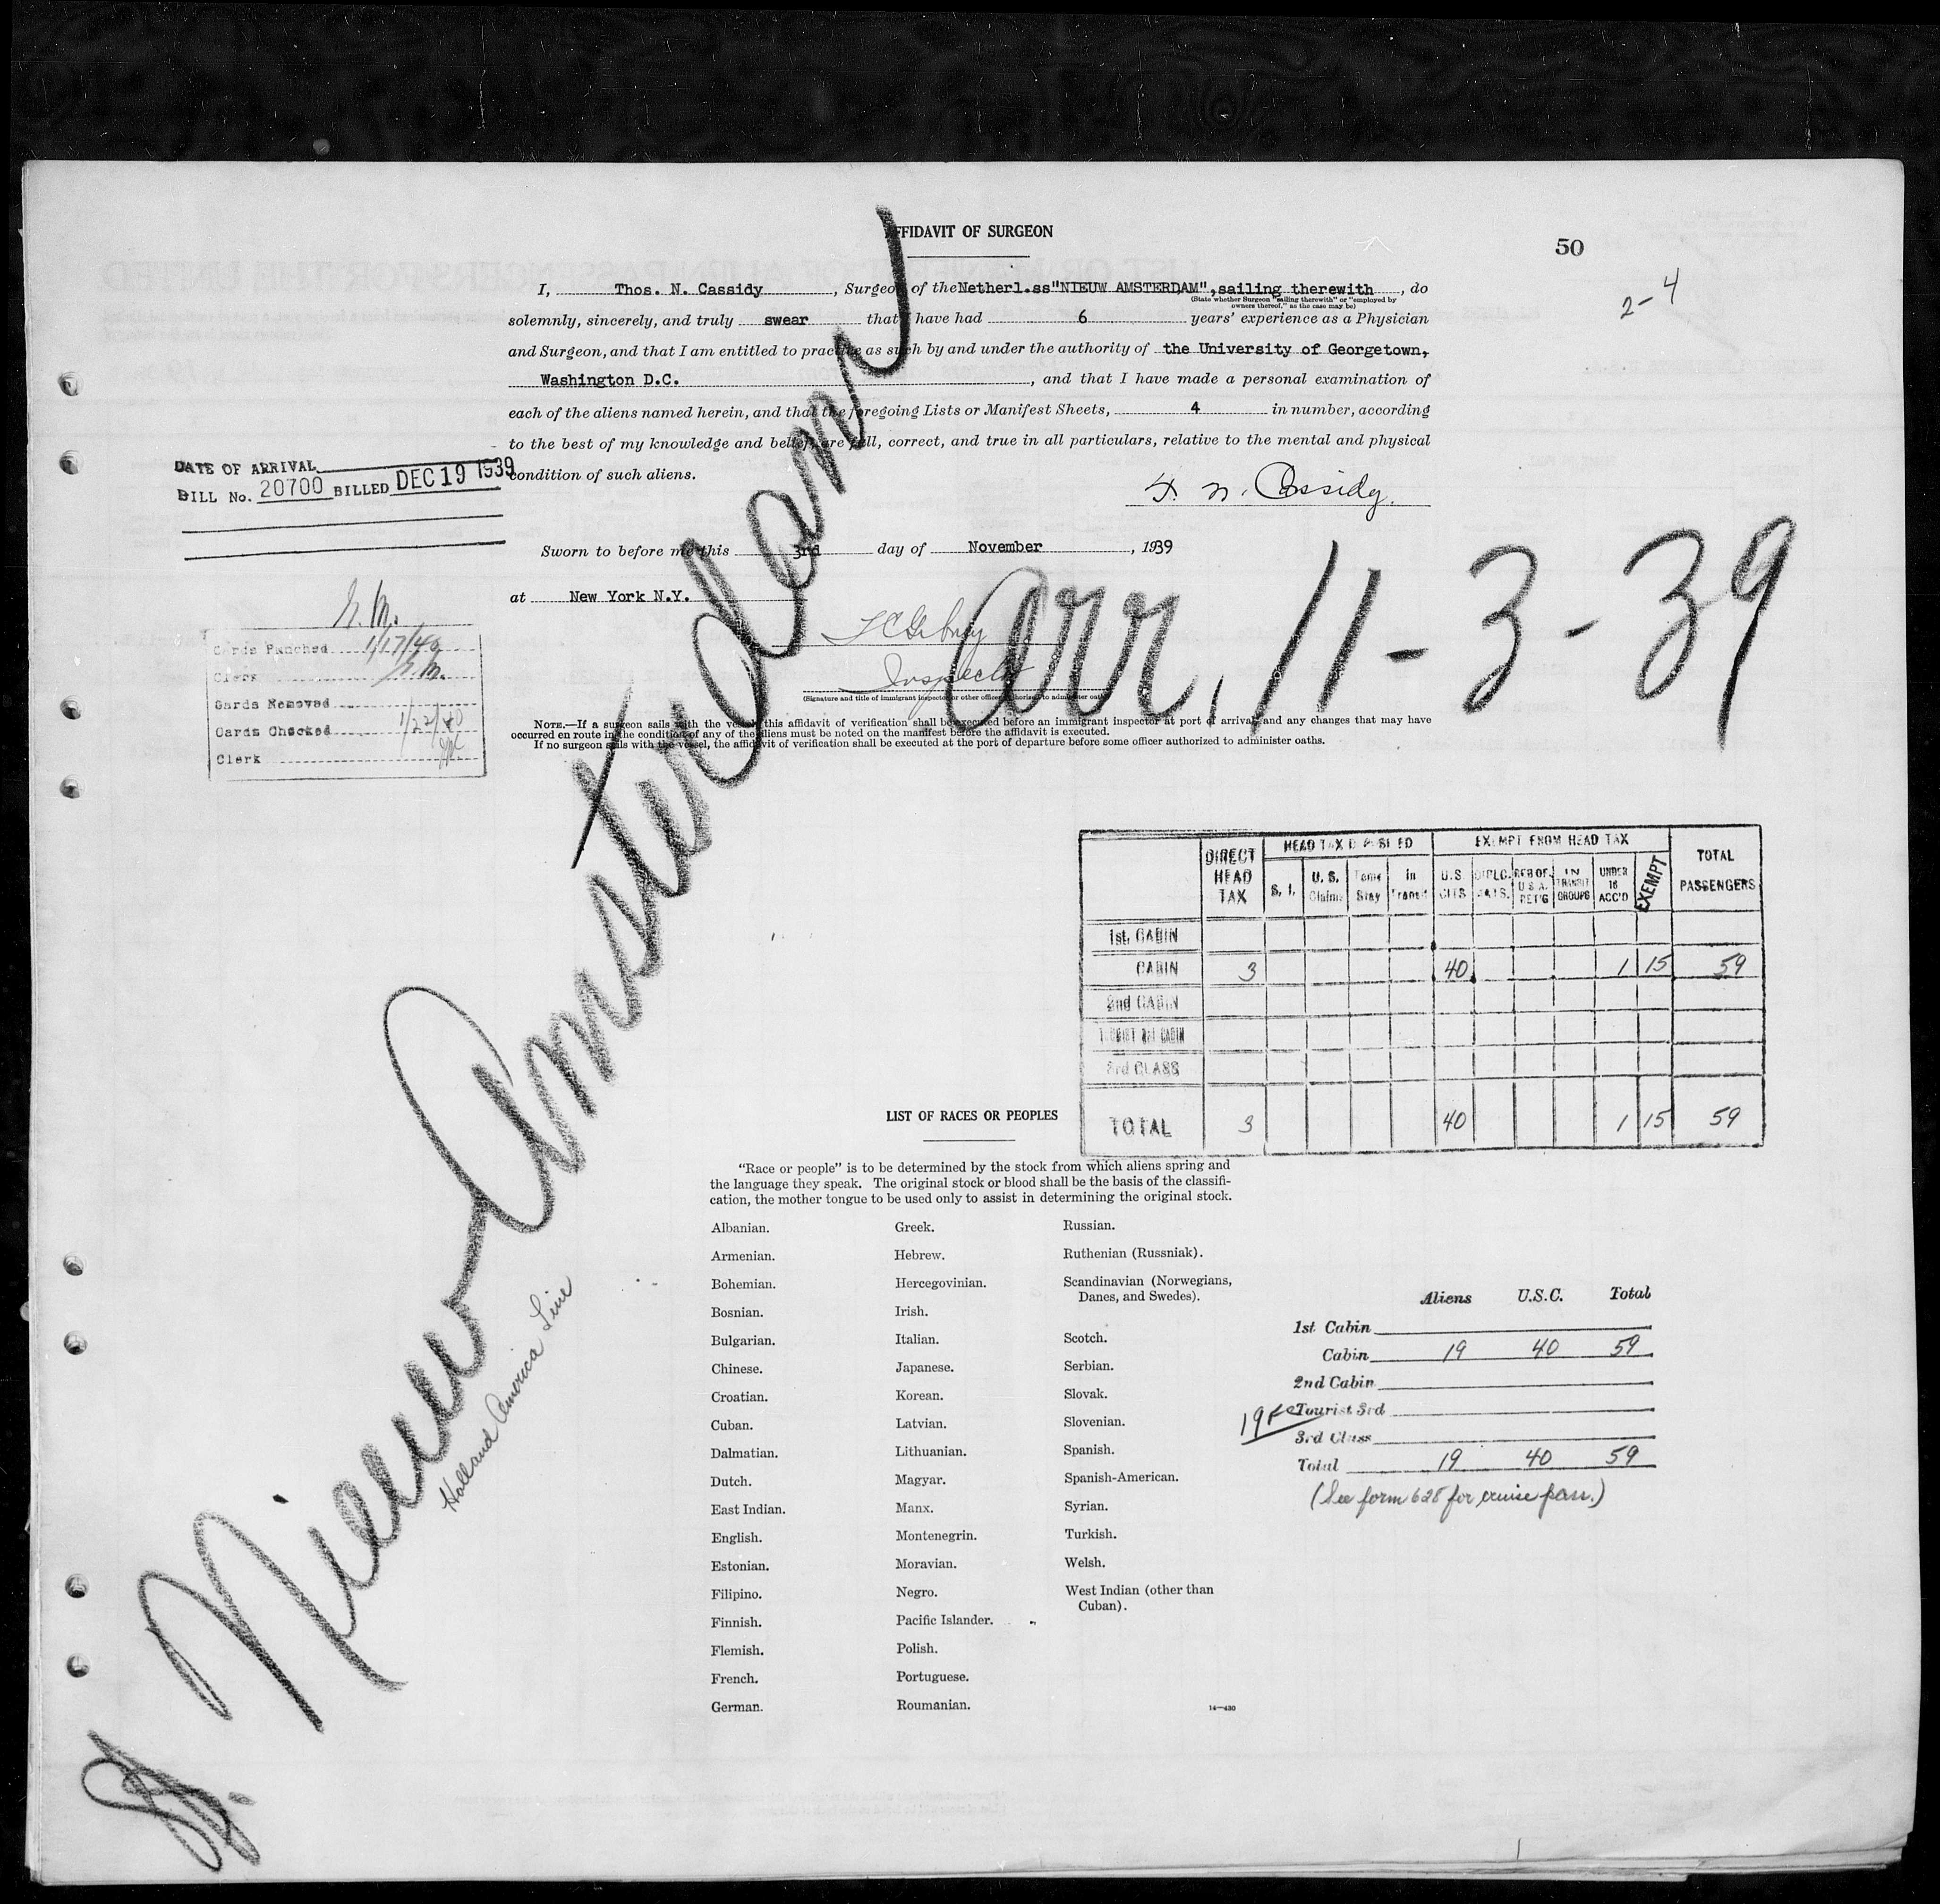 AFFIDAVIT OF SURGEON
50
2-4
I, Thos. N. Cassidy, Surgeon of the Netherl.ss "NIEUW AMSTERDAM", sailing therewith, do
(State whether Surgeon "sailing therewith" or "employed by
owners thereof," as the case may be)
solemnly, sincerely, and truly swear that I have had 6 years' experience as a Physician
and Surgeon, and that I am entitled to practice as such by and under the authority of the University of Georgetown,
Washington D.C., and that I have made a personal examination of
each of the aliens named herein, and that the foregoing Lists or Manifest Sheets, 4 in number, according
to the best of my knowledge and belief, are full, correct, and true in all particulars, relative to the mental and physical
condition of such aliens.
DATE OF ARRIVAL
BILL No. 20700 BILLED DEC 19 1939
T. N. Cassidy.
Sworn to before me this 3rd day of November, 1939
at New York N.Y.
Inspector
(Signature and title of immigrant inspector or other officer authorized to administer oaths)
Arr. 11-3-39
Cards Punched 1/17/40
Clerk
Cards Removed
Cards Checked 1/22/40
Clerk
NOTE.—If a surgeon sails with the vessel, this affidavit of verification shall be executed before an immigrant inspector at port of arrival, and any changes that may have
occurred en route in the condition of any of the aliens must be noted on the manifest before the affidavit is executed.
If no surgeon sails with the vessel, the affidavit of verification shall be executed at the port of departure before some officer authorized to administer oaths.
SS. Nieuw Amsterdam
Holland America Line
DIRECT HEAD TAX
HEAD TAX DEPOSITED
EXEMPT FROM HEAD TAX
TOTAL PASSENGERS
S. I. U.S. Claims Temp Stay In Transit U.S CITS DIPLO. RES OF U.S.A. RET'G IN TRANSIT GROUPS UNDER 16 ACC'D EXEMPT
1st. CABIN
CABIN 3 40 1 15 59
2nd CABIN
TOURIST 3rd CABIN
3rd CLASS
TOTAL 3 40 1 15 59
LIST OF RACES OR PEOPLES
"Race or people" is to be determined by the stock from which aliens spring and
the language they speak. The original stock or blood shall be the basis of the classifi-
cation, the mother tongue to be used only to assist in determining the original stock.
Albanian.
Armenian.
Bohemian.
Bosnian.
Bulgarian.
Chinese.
Croatian.
Cuban.
Dalmatian.
Dutch.
East Indian.
English.
Estonian.
Filipino.
Finnish.
Flemish.
French.
German.
Greek.
Hebrew.
Hercegovinian.
Irish.
Italian.
Japanese.
Korean.
Latvian.
Lithuanian.
Magyar.
Manx.
Montenegrin.
Moravian.
Negro.
Pacific Islander.
Polish.
Portuguese.
Roumanian.
Russian.
Ruthenian (Russniak).
Scandinavian (Norwegians,
Danes, and Swedes).
Scotch.
Serbian.
Slovak.
Slovenian.
Spanish.
Spanish-American.
Syrian.
Turkish.
Welsh.
West Indian (other than
Cuban).
14—430
Aliens U.S.C. Total
1st Cabin
Cabin 19 40 59
2nd Cabin
Tourist 3rd
3rd Class
Total 19 40 59
(See form 628 for cruise pass.)